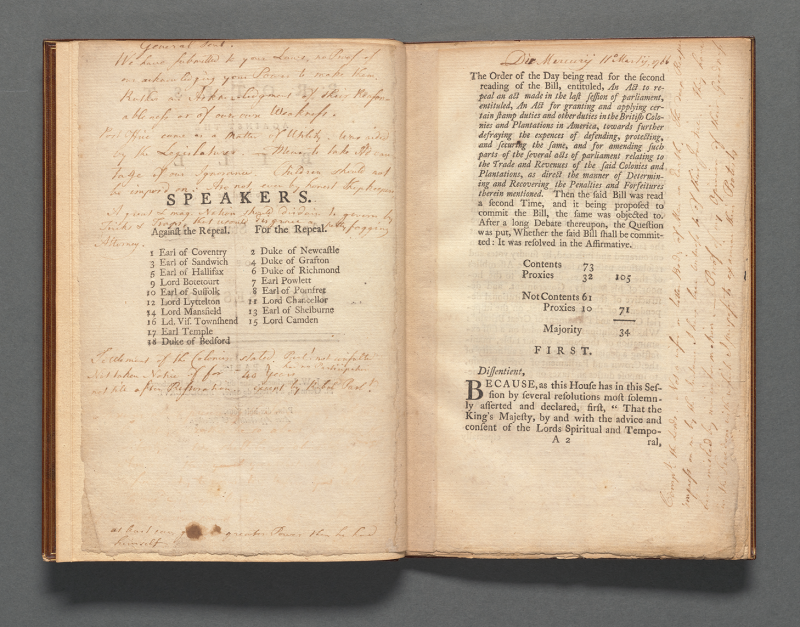 General Post.
We have submitted to your Laws, no Proof of
our acknowledging your Power to make them.
Rather an Acknowledgment of their Reason-
ableness or of our own Weakness.
Post Office came as a Matter of Utility. Was aided
by the Legislature. Mean to take Ad-
of our Ignorance. Children should not
be imposed on: Are not, even by honest Shopkeepers
SPEAKERS.
A great & mag. Nation should disdain to govern by
Tricks & Traps, that would disgrace a
Attorney.
Against the Repeal. For the Repeal.
1 Earl of Coventry 2 Duke of Newcastle
3 Earl of Sandwich 4 Duke of Grafton
5 Earl of Hallifax 6 Duke of Richmond
9 Lord Botetourt 7 Earl Powlett
10 Earl of Suffolk 8 Earl of Pomfret
12 Lord Lyttelton 11 Lord Chancellor
14 Lord Mansfield 13 Earl of Shelburne
16 Ld. Vis. Townshend 15 Lord Camden
17 Earl Temple
18 Duke of Bedford
Settlement of the Colonies stated. Parlt. not consulted
Not taken Notice of for 40 Years
not till after Restoration
greater Power than he had
himself
Die Mercurij 11o Martij, 1766
The Order of the Day being read for the second
reading of the Bill, entituled, An Act to re-
peal an act made in the last session of parliament,
entituled, An Act for granting and applying cer-
tain stamp duties and other duties in the British Colo-
nies and Plantations in America, towards further
defraying the expences of defending, protecting,
and securing the same, and for amending such
parts of the several acts of parliament relating to
the Trade and Revenues of the said Colonies and
Plantations, as direct the manner of Determin-
ing and Recovering the Penalties and Forfeitures
therein mentioned. Then the said Bill was read
a second Time, and it being proposed to
commit the Bill, the same was objected to.
After a long Debate thereupon, the Question
was put, Whether the said Bill shall be commit-
ted: It was resolved in the Affirmative.
Contents 73
Proxies 32 105
Not Contents 61
Proxies 10 71
Majority 34
FIRST.
Dissentient,
BECAUSE, as this House has in this Ses-
sion by several resolutions most solemn-
ly asserted and declared, first, “ That the
King's Majesty, by and with the advice and
consent of the Lords Spiritual and Tempo-
A 2 ral,